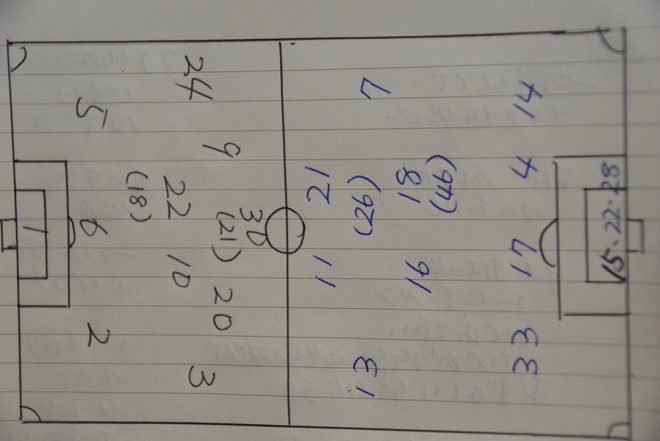 30
9 (21) 20
24 22 10 3
(18)
5 6 2
1
11 21
13 (26) 7
16 18
(46)
33 17 4 14
15.22.28